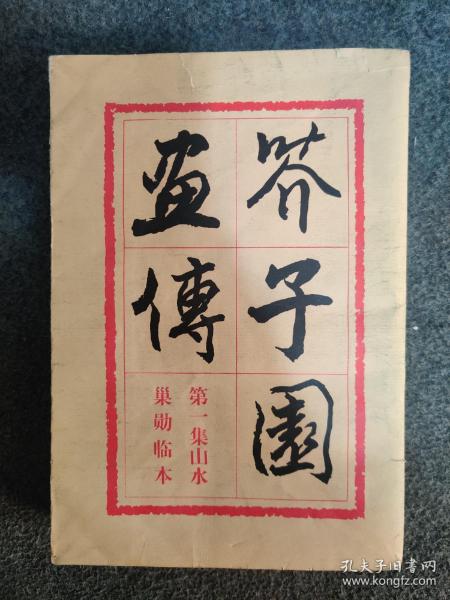 芥子園
畫傳
第一集山水
巢勛临本
孔夫子旧书网
www.kongfz.com